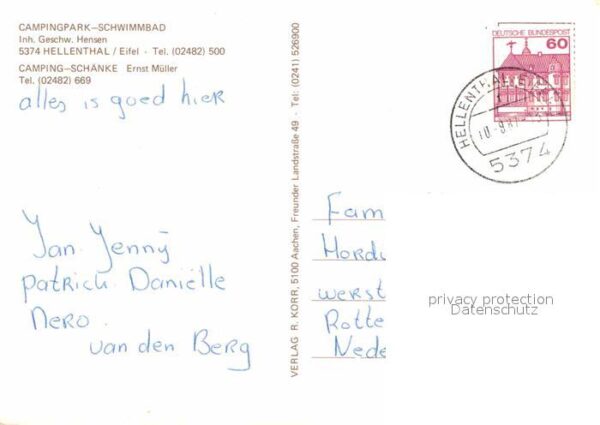 CAMPINGPARK–SCHWIMMBAD
Inh. Geschw. Hensen
5374 HELLENTHAL / Eifel · Tel. (02482) 500
CAMPING–SCHÄNKE Ernst Müller
Tel. (02482) 669
alles is goed hier
Jan. Jenny
Patrick Daniëlle
Nero.
van den Berg
VERLAG R. KORR, 5100 Aachen, Freunder Landstraße 49 · Tel: (0241) 526900
DEUTSCHE BUNDESPOST
60
HELLENTHAL
5374
Fam
Hord
werst
Rotte
Nede
privacy protection
Datenschutz